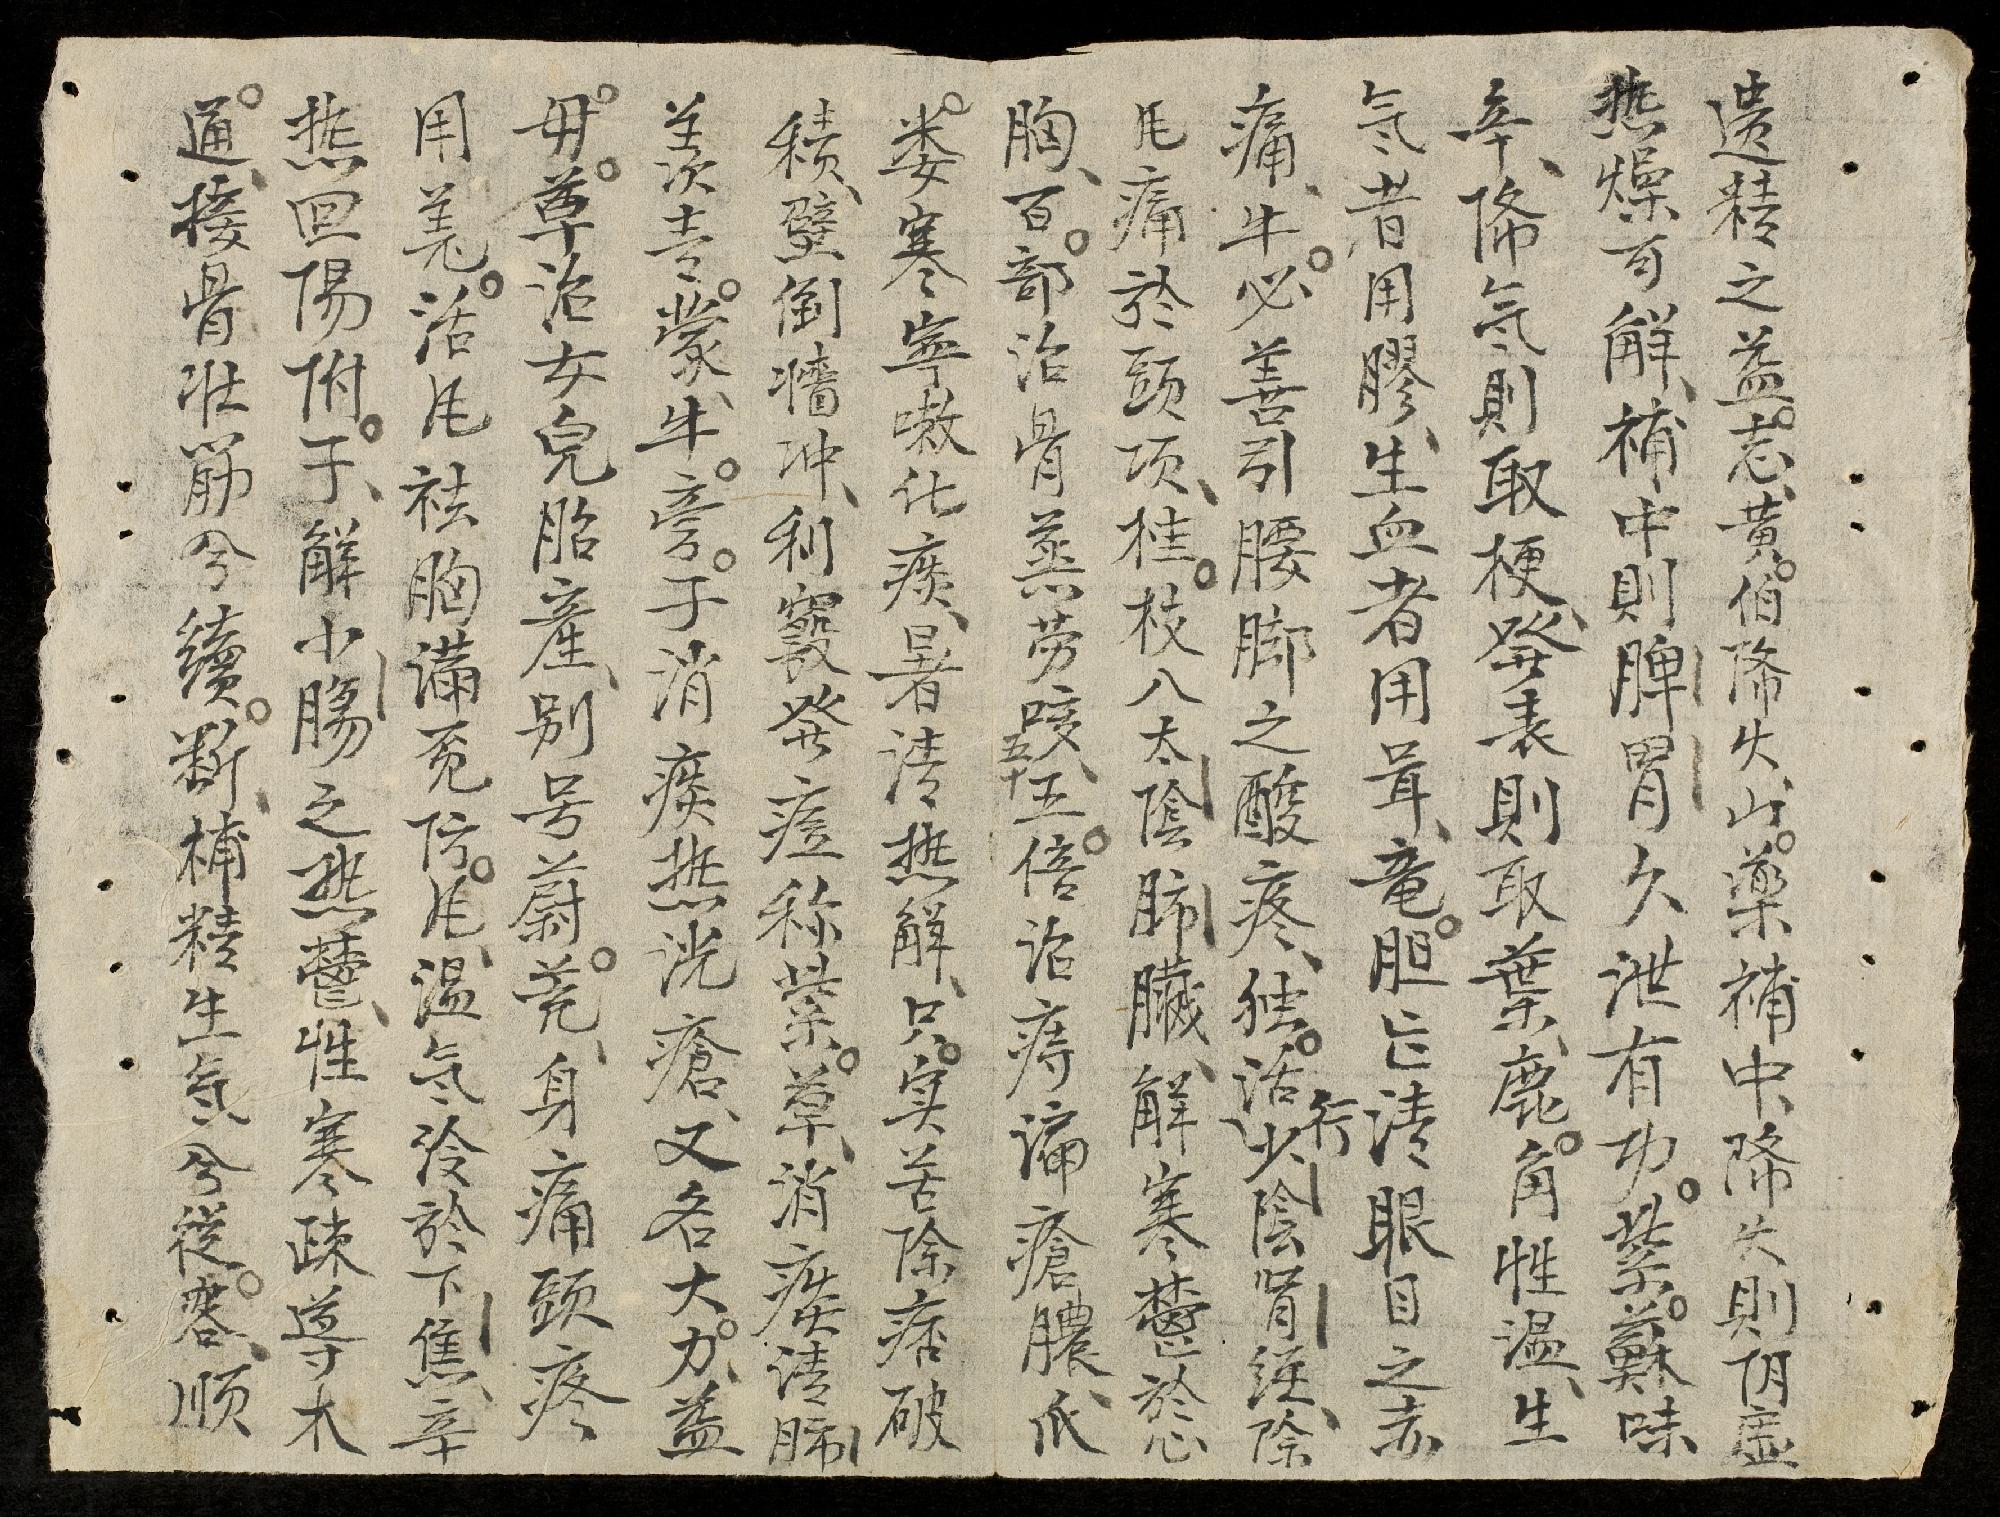 遗精之益志、黄伯降火、山藥補中、降火則阴虚
热燥可解、補中則脾胃久泄有功。紫蘇味
辛、降气則取梗、發表則取葉、鹿角性温、生
气者用膠、生血者用茸、竜胆旨清眼目之赤
痛、牛必善引腰脚之酸疼、独活行少陰肾経、除
凡痛於頭项、桂枝入太陰肺臓、解寒欝於心
胸、百部治骨蒸劳咳、五倍治痔漏瘡膿、瓜
蒌寒寧嗽化痰、暑清热解、只实苦除痞破
積、壁倒墻冲、利竅發痘称紫草、消痰清肺
羡次青蒙、牛旁子消痰热洗瘡、又名大力、益
母草治女児胎産、别号蔚荒、身痛頭疼
用羌活、凡祛胸滿死防凡、温气冷於下焦、辛
热回陽附子、解小腸之热欝、性寒疎導木
通、接骨壮筋兮續断、補精生气兮從容、顺